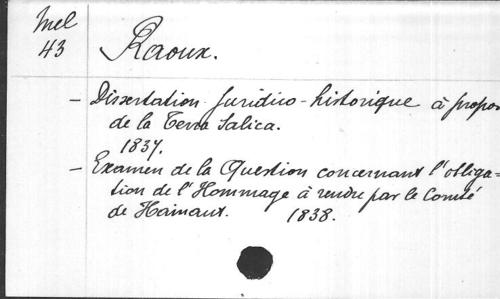 Mel
43
Raoux.
- Dissertation Juridico-historique à propos
de la Terra Salica.
1837.
- Examen de la Question concernant l'obliga=
tion de l'Hommage à rendre par le Comté
de Hainaut. 1838.